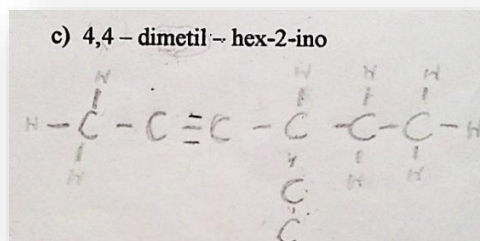 c) 4,4 – dimetil – hex-2-ino
H H H H
H - C - C ≡ C - C - C - C - H
H H H
C
C